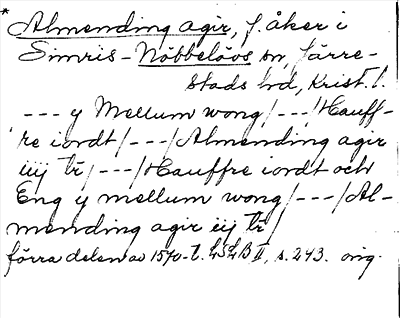 * Almending agir, f. åker i
Simris-Nöbbelöos sn, Järre-
stads hd, Krist. l.
--- y Mellum wong/---/Hauff-
re iordt/---/Almending agir
iiij tr/---/Hauffre iordt och
Eng y mellum wong/---/Al-
mending agir iij tr/
förra delen av 1570-t. LSLB II, s. 243. orig.